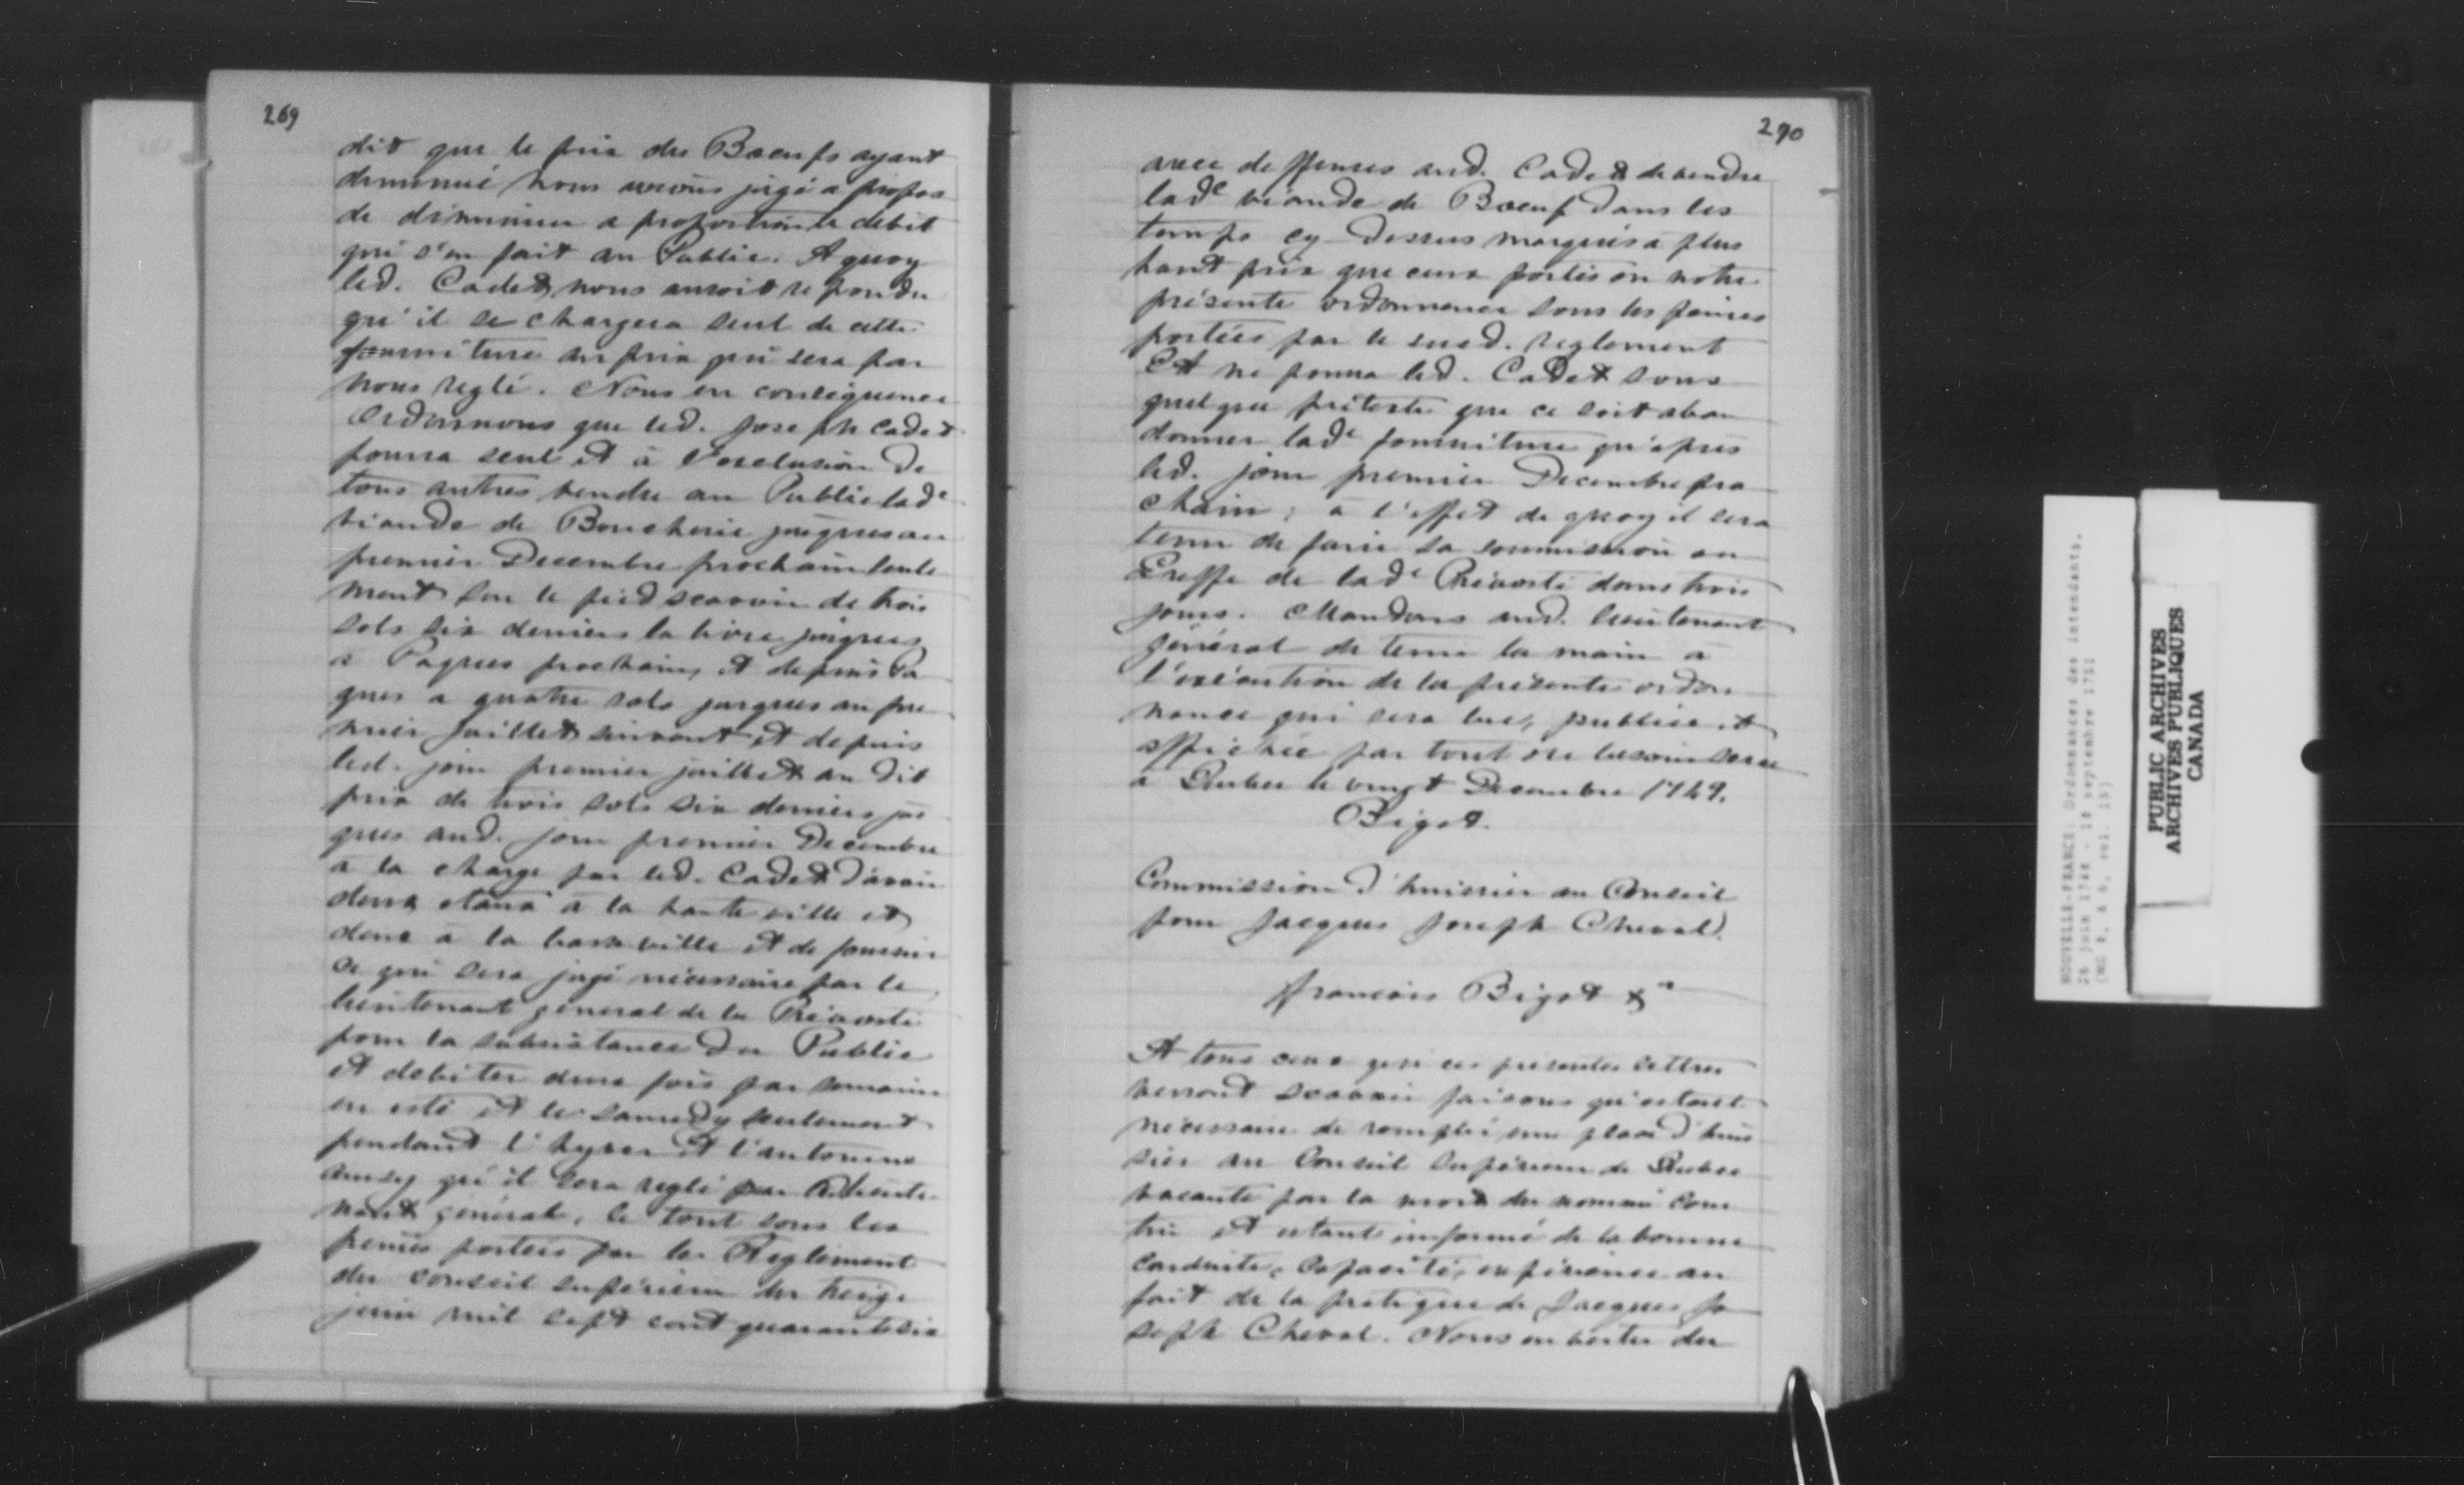 269
dit que le prix des Boeufs ayant
diminué nous avions jugé a propos
de diminuer a proportion le debit
qui s'en fait au Public. A quoy
led. Cadet nous auroit repondu
qu'il se chargera seul de cette
fourniture au prix qui sera par
nous reglé. Nous en conséquence
Ordonnons que led. Joseph Cadet
pourra seul et à l'exclusion de
tous autres vendre au Public lade
viande de Boucherie jusques au
premier Decembre prochain seule
ment sur le pied scavoir de trois
sols six deniers la livre jusques
a Paques prochain, et depuis Pa
ques a quatre sols jusques au pre
mier Juillet suivant et depuis
led. jour premier juillet au dit
prix de trois sols six deniers jus
ques aud. jour premier Decembre
a la charge par led. Cadet d'avoir
deux etaux à la haute ville et
deux a la basse ville et de fournir
ce qui sera jugé nécessaire par le
lieutenant général de la Prévosté
pour la subsistance du Public
et debiter deux fois par semaine
en esté et le samedy seulement
pendant l'hyver et l'automne
ainsy qu'il sera reglé par led lieute
nant général, le tout sous les
peines portées par le Reglement
du conseil supérieur du treize
juin mil sept cent quarante six
270
avec deffenses aud. Cadet de vendre
lade viande de Boeuf dans les
temps cy-dessus marqués a plus
haut prix que ceux portés en notre
présente ordonnance sous les peines
portées par le susd. reglement
Et ne pourra led. Cadet sous
quelque prétexte que ce soit aban
donner lade fourniture qu'après
led. jour premier Decembre pro
chain; a l'effet de quoy il sera
tenu de faire sa soumission au
Greffe de lade Prévosté dans trois
jours. Mandons aud. lieutenant
général de tenir la main a
l'exécution de la présente ordon
nance qui sera lue, publiée et
affichée par tout ou besoin sera
a Quebec le vingt Decembre 1749.
Bigot.
Commission d'huissier au Conseil
pour Jacques Joseph Cheval.
françois Bigot &a
A tous ceux qui ces présentes lettres
verront scavoir faisons qu'estant
nécessaire de remplir une place d'huis
sier au Conseil Supérieur de Quebec
vacante par la mort du nommé
et estant informé de la bonne
conduite, capacité, expérience au
fait de la pratique de Jacques Jo
seph Cheval. Nous en vertu du
NOUVELLE-FRANCE. Ordonnances des intendants.
26 juin 1748 - 18 septembre 1751
PUBLIC ARCHIVES
ARCHIVES PUBLIQUES
CANADA